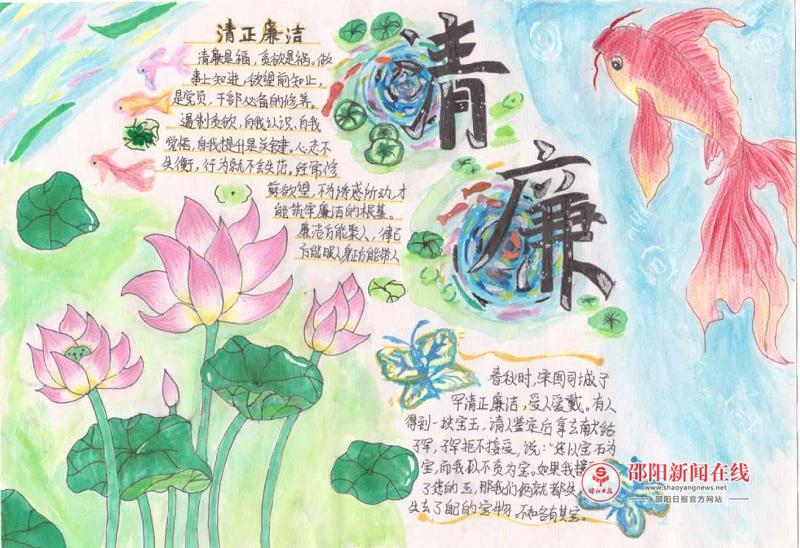 清正廉洁
清廉是福，贪欲是祸。做
事上知进，欲望前知止，
是党员，干部必备的修养。
遏制贪欲，自我认识、自我
觉悟，自我提升是关键。心态不
失衡，行为就不会失范。经常修
剪欲望，不为诱惑所动，才
能筑牢廉洁的根基。
廉洁方能聚人，律己
方能服人，身正方能带人
清
廉
春秋时，宋国司城子
罕清正廉洁，受人爱戴。有人
得到一块宝玉，请人鉴定后拿去献给
子罕，子罕拒不接受，说："您以宝石为
宝，而我以不贪为宝。如果我接
了您的玉，那我们俩就都失
失去了自己的宝物，不如各有其宝。
邵阳新闻在线
www.shaoyangnews.net
邵阳日报官方网站